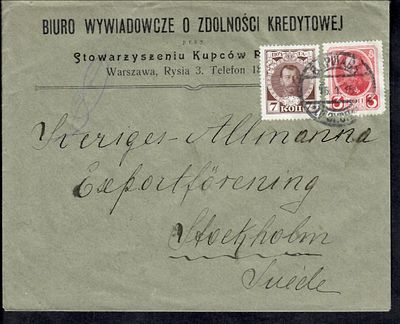 BIURO WYWIADOWCZE O ZDOLNOŚCI KREDYTOWEJ
przy
Stowarzyszeniu Kupców
Warszawa, Rysia 3. Telefon
7 КОП 7
3 КОП 3
Sveriges-Allmänna
Exportförening
Stockholm
Suède